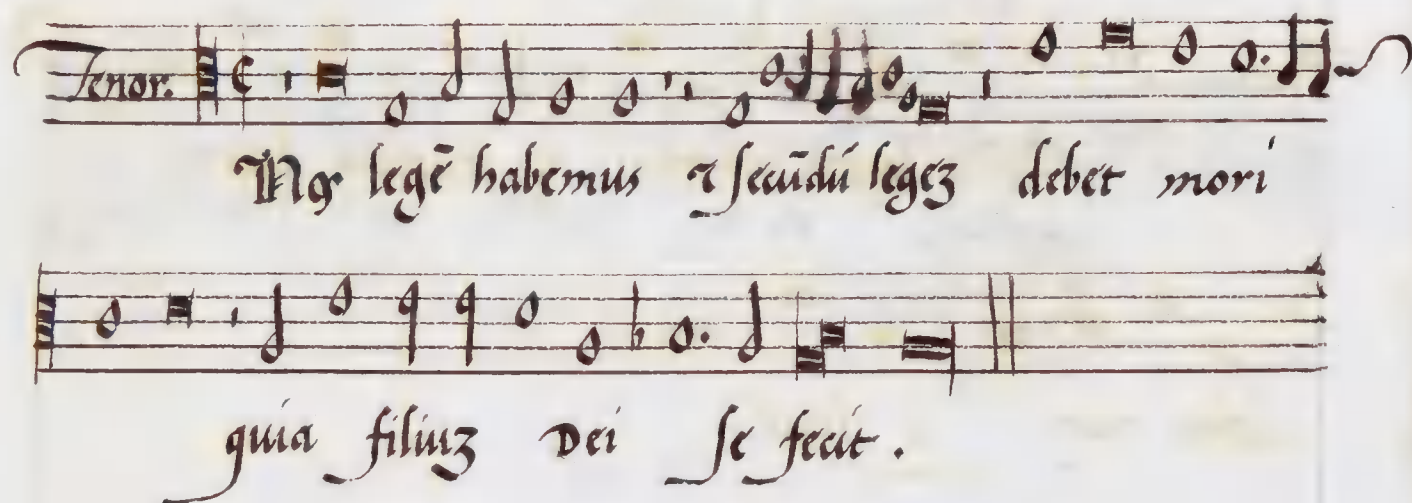 Tenor.
Nos legē habemus ⁊ secūdū legeʒ debet mori
quia filiuʒ Dei se fecit.